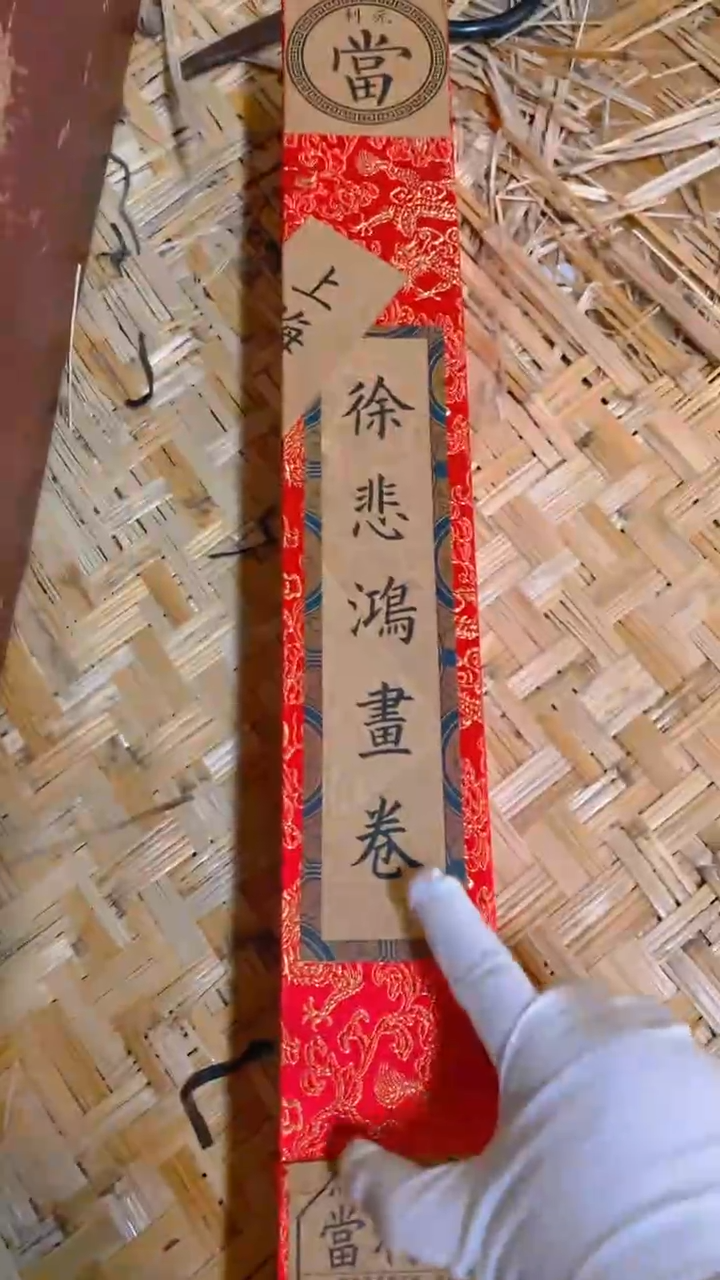 當
上海
徐悲鴻畫卷
當